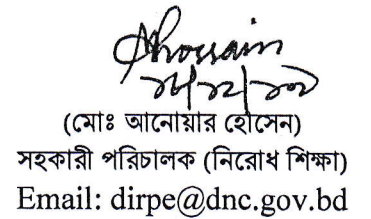 Ahossain
(মোঃ আনোয়ার হোসেন)
সহকারী পরিচালক (নিরোধ শিক্ষা)
Email: dirpe@dnc.gov.bd